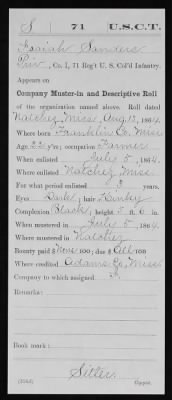 S | 71 | U.S.C.T.
Isaiah Sanders
Priv, Co. I, 71 Reg't U. S. Col'd Infantry.
Appears on
Company Muster-in and Descriptive Roll
of the organization named above. Roll dated
Natchez Miss, Aug 13, 1864.
Where born Franklin Co. Miss
Age 22 y'rs; occupation Farmer
When enlisted July 5, 1864.
Where enlisted Natchez Miss.
For what period enlisted 3 years.
Eyes Dark; hair Kinky
Complexion Black; height 5 ft. 6 in.
When mustered in July 5, 1864.
Where mustered in Natchez
Bounty paid $ None 100; due $ 100
Where credited Adams Co, Miss
Company to which assigned
Remarks:
Book mark:
Sitler
Copyist.